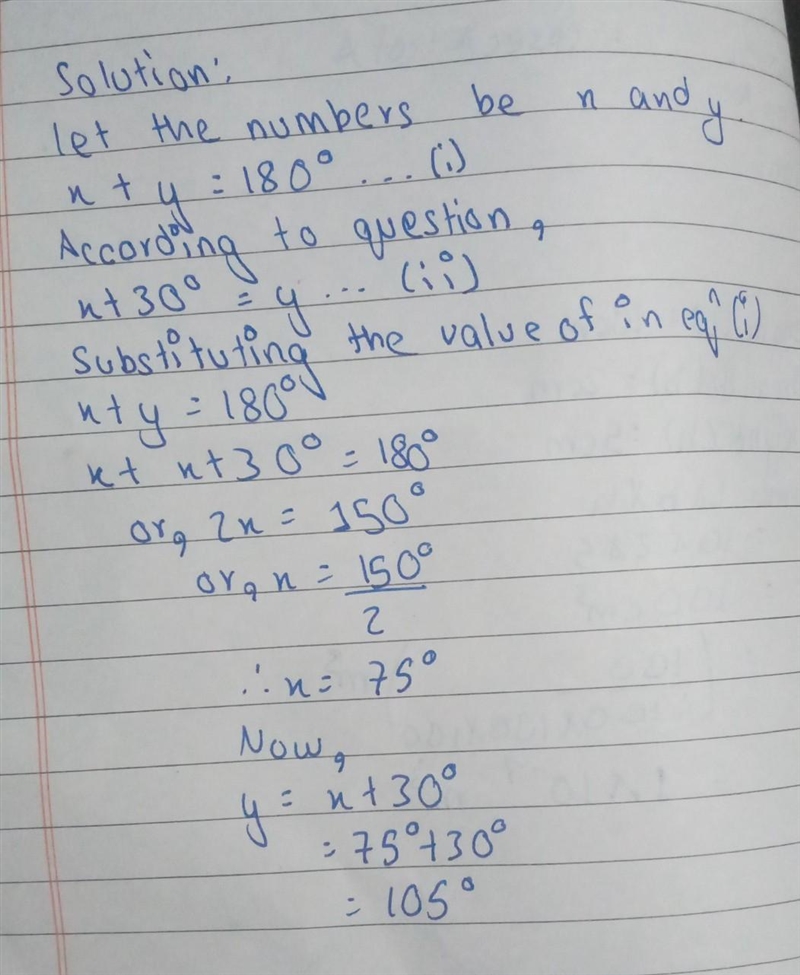 Solution:
let the numbers be x and y.
x + y = 180° ... (i)
According to question,
x + 30° = y ... (ii)
Substituting the value of in eqⁿ (i)
x + y = 180°
x + x + 30° = 180°
or, 2x = 150°
or, x = 150°/2
∴ x = 75°
Now,
y = x + 30°
= 75° + 30°
= 105°